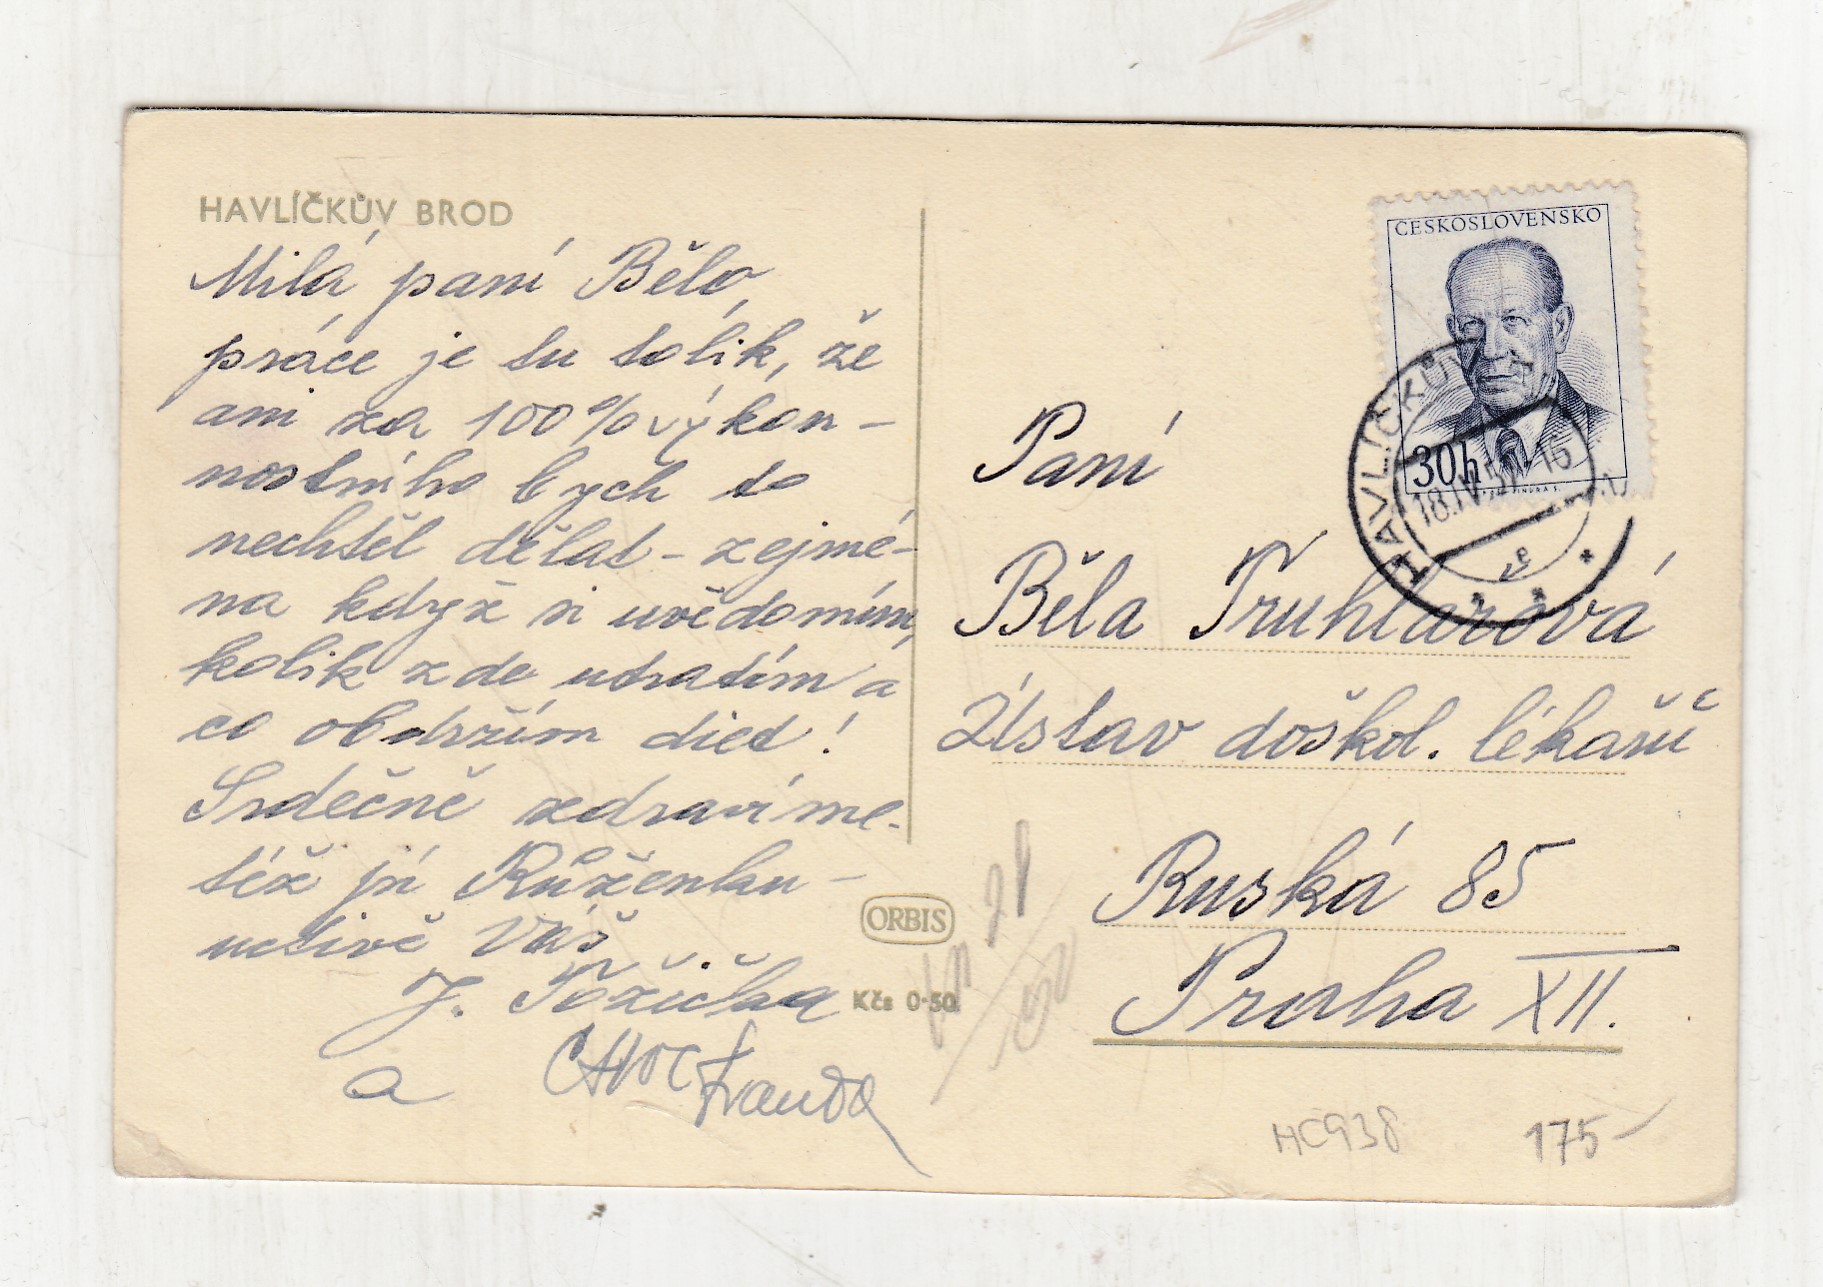 HAVLÍČKŮV BROD
Milá paní Bělo,
práce je tu tolik, že
ani za 100% výkon-
nostního bych to
nechtěl dělat - zejmé-
na když si uvědomím,
kolik zde utratím a
co obdržím diet!
Srdečně zdravíme -
též pí Růženku -
uctivě Váš
J. Požička
a
Franta
ORBIS
Kčs 0·50
ČESKOSLOVENSKO
30h
HAVLÍČKŮV
18.IV.
Paní
Běla Truhlářová
Ústav doškol. lékařů
Ruská 85
Praha XII.
HC938
175-